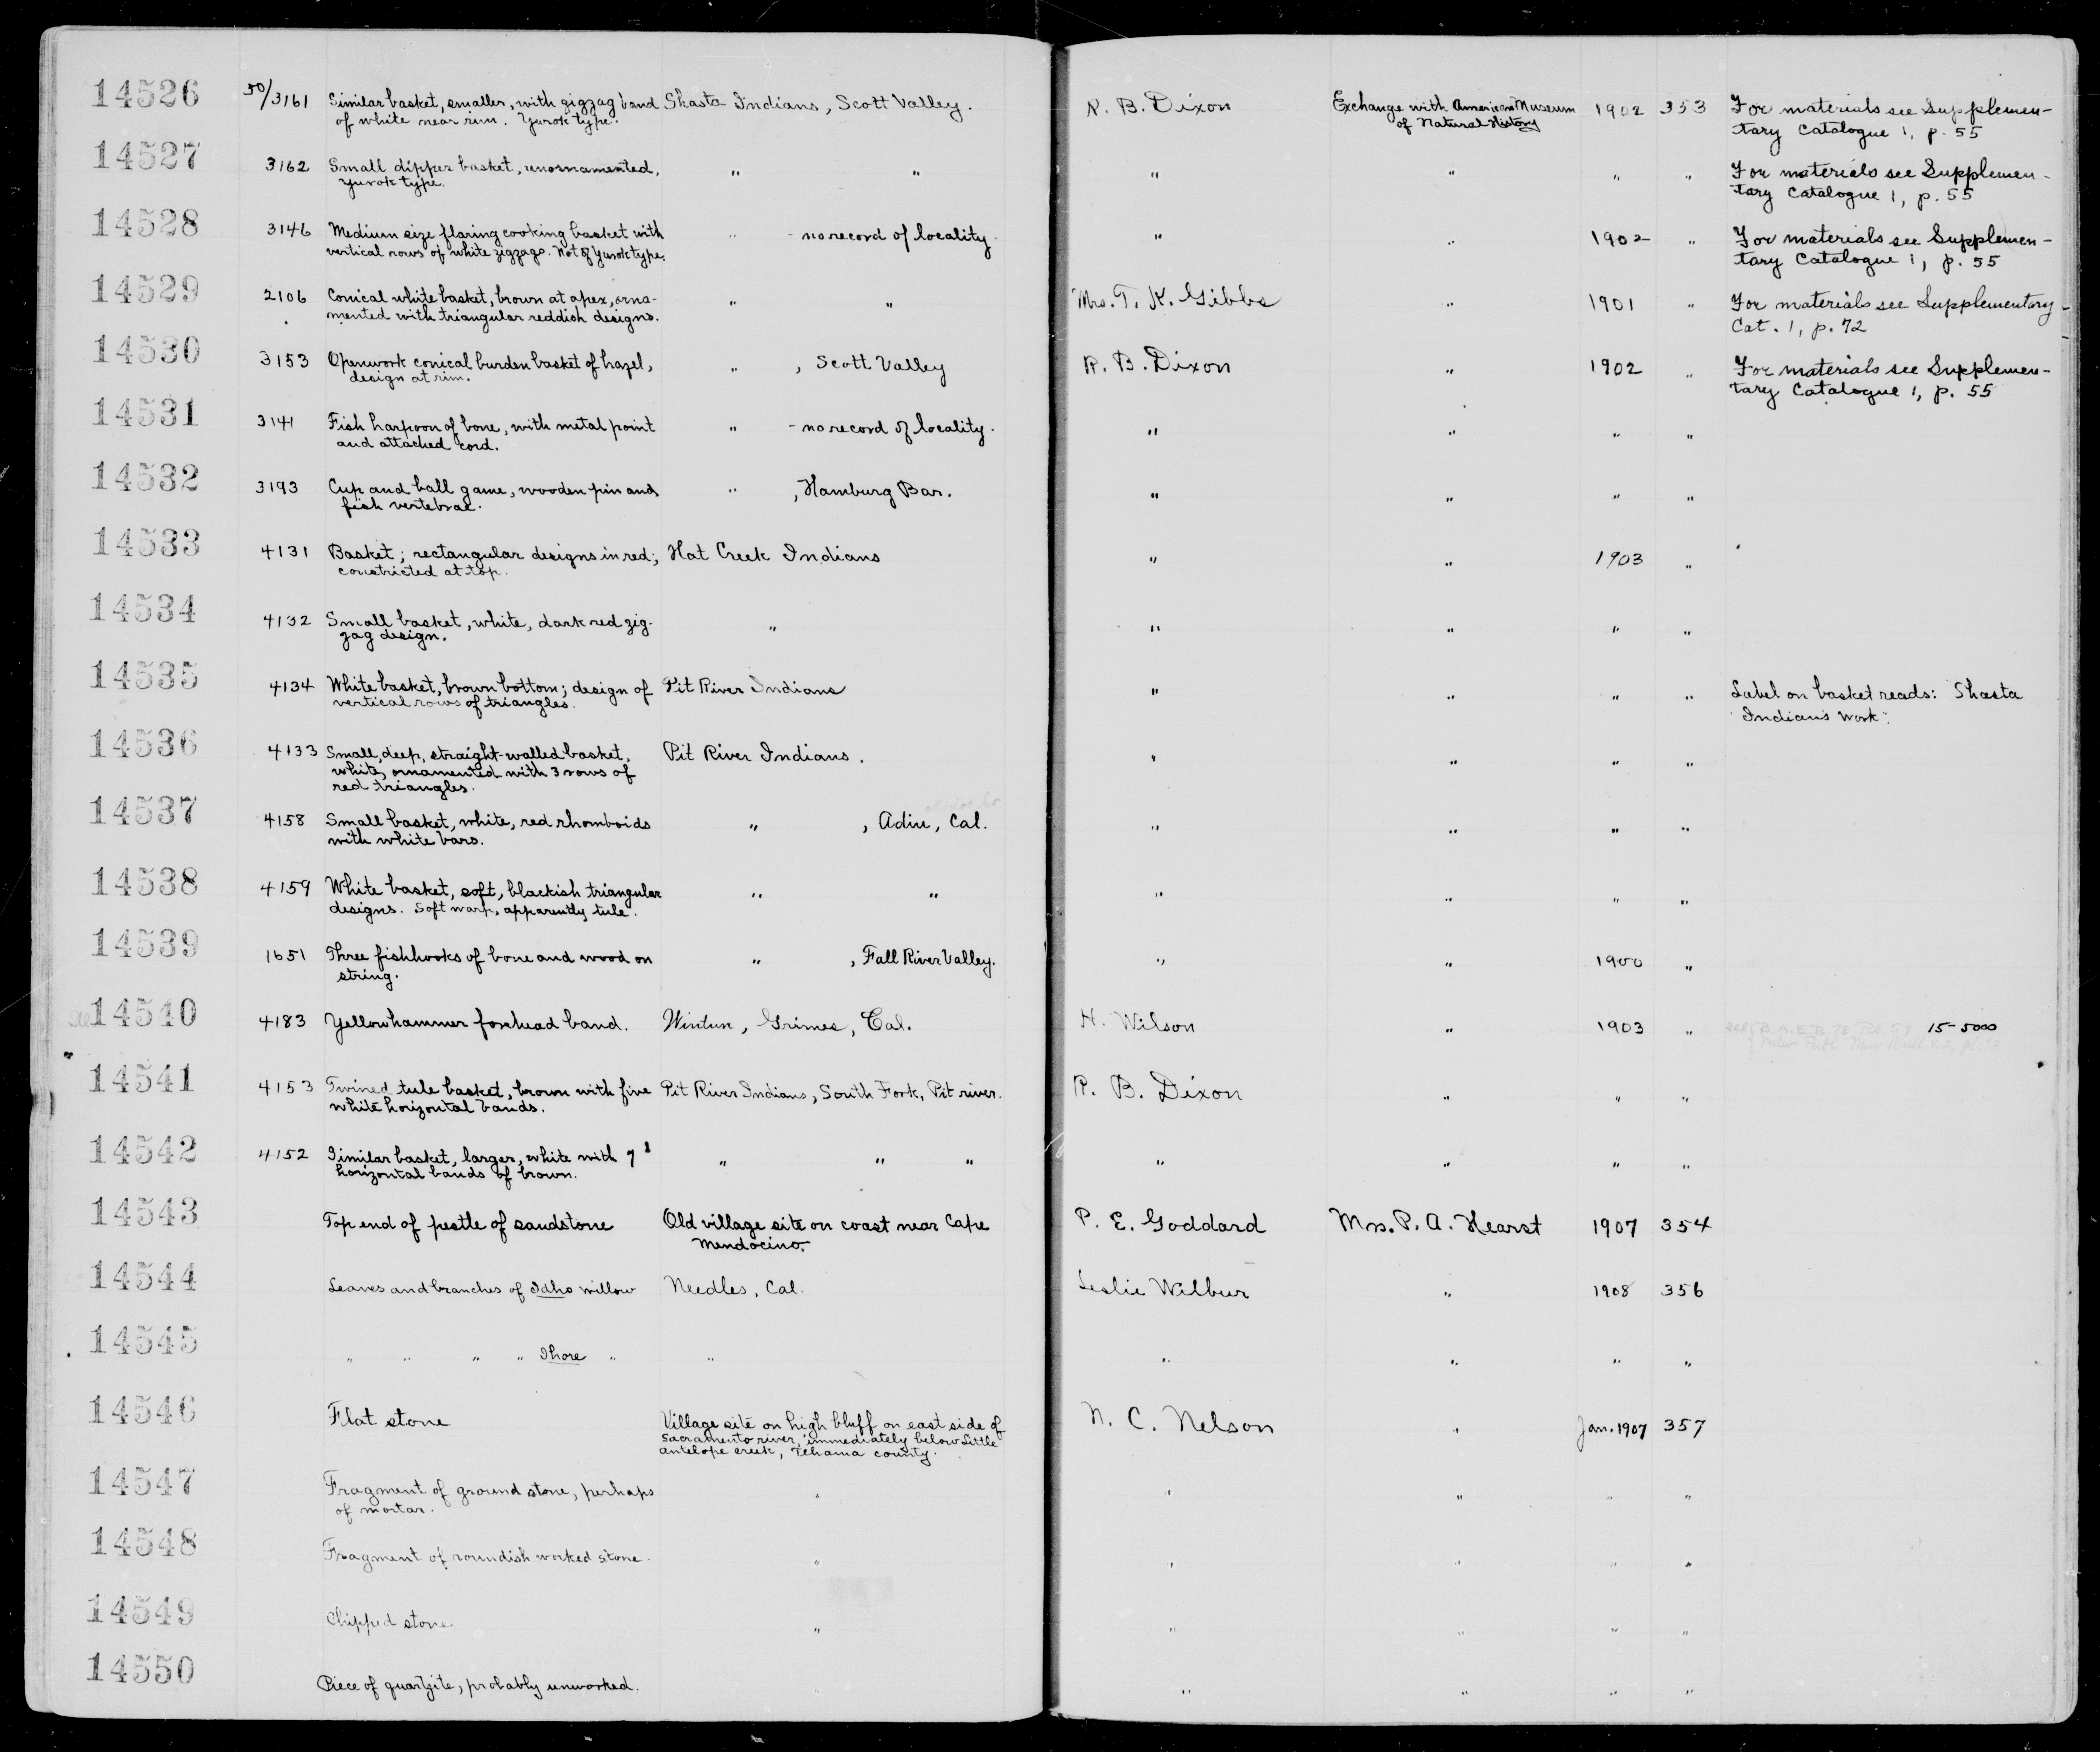 14526 50/3161 Similar basket, smaller, with zigzag band Shasta Indians, Scott Valley. R. B. Dixon Exchange with American Museum 1902 353 For materials see Supplemen-
of white near rim. Yurok type. of Natural History tary Catalogue 1, p. 55
14527 3162 Small dipper basket, unornamented, " " " " " " For materials see Supplemen-
Yurok type. tary Catalogue 1, p. 55
14528 3146 Medium size flaring cooking basket with " - no record of locality. " " 1902 " For materials see Supplemen-
vertical rows of white zigzags. Not of Yurok type. tary Catalogue 1, p. 55
14529 2106 Conical white basket, brown at apex, orna- " " Mrs. T. K. Gibbs " 1901 " For materials see Supplementary
mented with triangular reddish designs. Cat. 1, p. 72
14530 3153 Openwork conical burden basket of hazel, " , Scott Valley R. B. Dixon " 1902 " For materials see Supplemen-
design at rim. tary Catalogue 1, p. 55
14531 3141 Fish harpoon of bone, with metal point " - no record of locality. " " " "
and attached cord.
14532 3193 Cup and ball game, wooden pin and " , Hamburg Bar. " " " "
fish vertebrae.
14533 4131 Basket; rectangular designs in red; Hat Creek Indians " " 1903 "
constricted at top.
14534 4132 Small basket, white, dark red zig- " " " " "
zag design.
14535 4134 White basket, brown bottom; design of Pit River Indians " " " " Label on basket reads: Shasta
vertical rows of triangles. Indians work".
14536 4133 Small, deep, straight-walled basket, Pit River Indians. " " " "
white, ornamented with 3 rows of
red triangles.
14537 4158 Small basket, white, red rhomboids " , Adin, Cal. " " " "
with white bars.
14538 4159 White basket, soft, blackish triangular " " " " " "
designs. Soft warp, apparently tule.
14539 1651 Three fishhooks of bone and wood on " , Fall River Valley. " " 1900 "
string.
14540 4183 Yellowhammer forehead band. Wintun, Grimes, Cal. H. Wilson " 1903 " 15-5000
14541 4153 Twined tule basket, brown with five Pit River Indians, South Fork, Pit river. R. B. Dixon " " "
white horizontal bands.
14542 4152 Similar basket, larger, white with 7 " " " " " " "
horizontal bands of brown.
14543 Top end of pestle of sandstone Old village site on coast near Cape P. E. Goddard Mrs. P. A. Hearst 1907 354
Mendocino.
14544 Leaves and branches of Idho willow Needles, Cal. Leslie Wilbur " 1908 356
14545 " " " " Ihore " " " " " "
14546 Flat stone Village site on high bluff on east side of N. C. Nelson " Jan. 1907 357
Sacramento river, immediately below Little
antelope creek, Tehama county.
14547 Fragment of ground stone, perhaps " " " " "
of mortar.
14548 Fragment of roundish worked stone. " " " " "
14549 Chipped stone. " " " " "
14550 Piece of quartzite, probably unworked. " " " " "